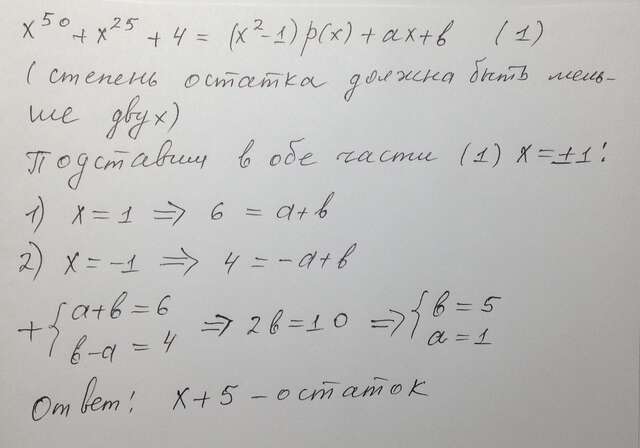 x⁵⁰ + x²⁵ + 4 = (x² - 1) p(x) + ax + b (1)
(степень остатка должна быть мень-
ше двух)
Подставим в обе части (1) x = ±1:
1) x = 1 ⇒ 6 = a + b
2) x = -1 ⇒ 4 = -a + b
+ { a + b = 6
b - a = 4 ⇒ 2b = 10 ⇒ { b = 5
a = 1
Ответ: x + 5 - остаток